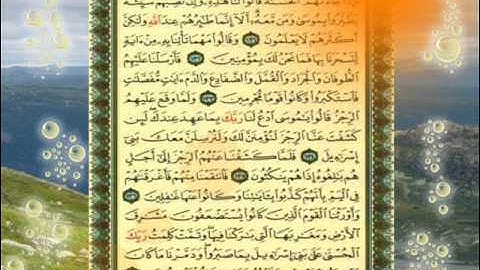 فَإِذَا جَآءَتْهُمُ ٱلْحَسَنَةُ قَالُوا۟ لَنَا هَٰذِهِۦ وَإِن تُصِبْهُمْ سَيِّئَةٌ
يَطَّيَّرُوا۟ بِمُوسَىٰ وَمَن مَّعَهُۥٓ أَلَآ إِنَّمَا طَٰٓئِرُهُمْ عِندَ ٱللَّهِ وَلَٰكِنَّ
أَكْثَرَهُمْ لَا يَعْلَمُونَ ١٣١ وَقَالُوا۟ مَهْمَا تَأْتِنَا بِهِۦ مِنْ ءَايَةٍ
لِّتَسْحَرَنَا بِهَا فَمَا نَحْنُ لَكَ بِمُؤْمِنِينَ ١٣٢ فَأَرْسَلْنَا عَلَيْهِمُ
ٱلطُّوفَانَ وَٱلْجَرَادَ وَٱلْقُمَّلَ وَٱلضَّفَادِعَ وَٱلدَّمَ ءَايَٰتٍ مُّفَصَّلَٰتٍ
فَٱسْتَكْبَرُوا۟ وَكَانُوا۟ قَوْمًا مُّجْرِمِينَ ١٣٣ وَلَمَّا وَقَعَ عَلَيْهِمُ
ٱلرِّجْزُ قَالُوا۟ يَٰمُوسَى ٱدْعُ لَنَا رَبَّكَ بِمَا عَهِدَ عِندَكَ لَئِن
كَشَفْتَ عَنَّا ٱلرِّجْزَ لَنُؤْمِنَنَّ لَكَ وَلَنُرْسِلَنَّ مَعَكَ بَنِىٓ
إِسْرَٰٓءِيلَ ١٣٤ فَلَمَّا كَشَفْنَا عَنْهُمُ ٱلرِّجْزَ إِلَىٰٓ أَجَلٍ
هُم بَٰلِغُوهُ إِذَا هُمْ يَنكُثُونَ ١٣٥ فَٱنتَقَمْنَا مِنْهُمْ فَأَغْرَقْنَٰهُمْ
فِى ٱلْيَمِّ بِأَنَّهُمْ كَذَّبُوا۟ بِـَٔايَٰتِنَا وَكَانُوا۟ عَنْهَا غَٰفِلِينَ ١٣٦
وَأَوْرَثْنَا ٱلْقَوْمَ ٱلَّذِينَ كَانُوا۟ يُسْتَضْعَفُونَ مَشَٰرِقَ
ٱلْأَرْضِ وَمَغَٰرِبَهَا ٱلَّتِى بَٰرَكْنَا فِيهَا وَتَمَّتْ كَلِمَتُ رَبِّكَ
ٱلْحُسْنَىٰ عَلَىٰ بَنِىٓ إِسْرَٰٓءِيلَ بِمَا صَبَرُوا۟ وَدَمَّرْنَا مَا كَانَ